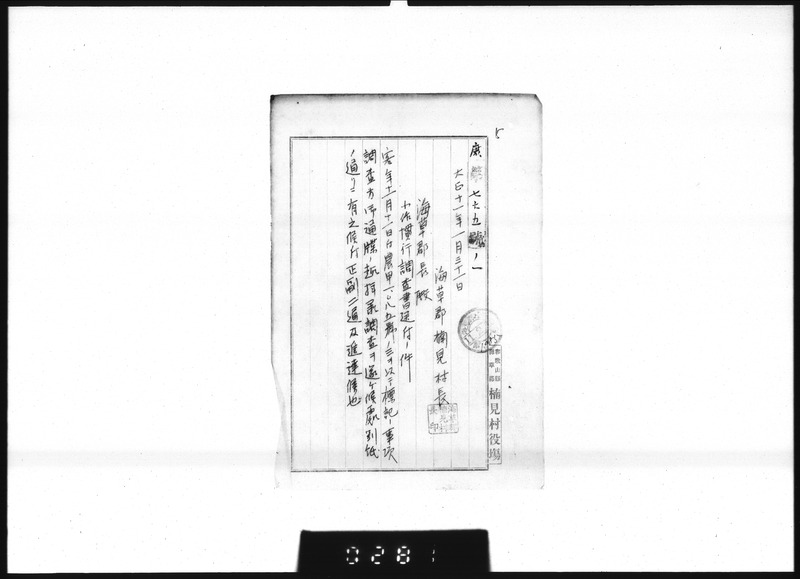 庶第七六五號ノ一
大正十一年一月三十一日
海草郡楠見村長
海草郡長殿
小作慣行調査書送付ノ件
客年十一月十一日付農甲一、〇八五號ノ三ヲ以テ標記ノ事項
調査方御通牒ノ趣拝承調査ヲ遂ケ候處別紙
ノ通リニ有之候付正副二通及進達候也
和歌山縣
海草郡
楠見村役場
0281